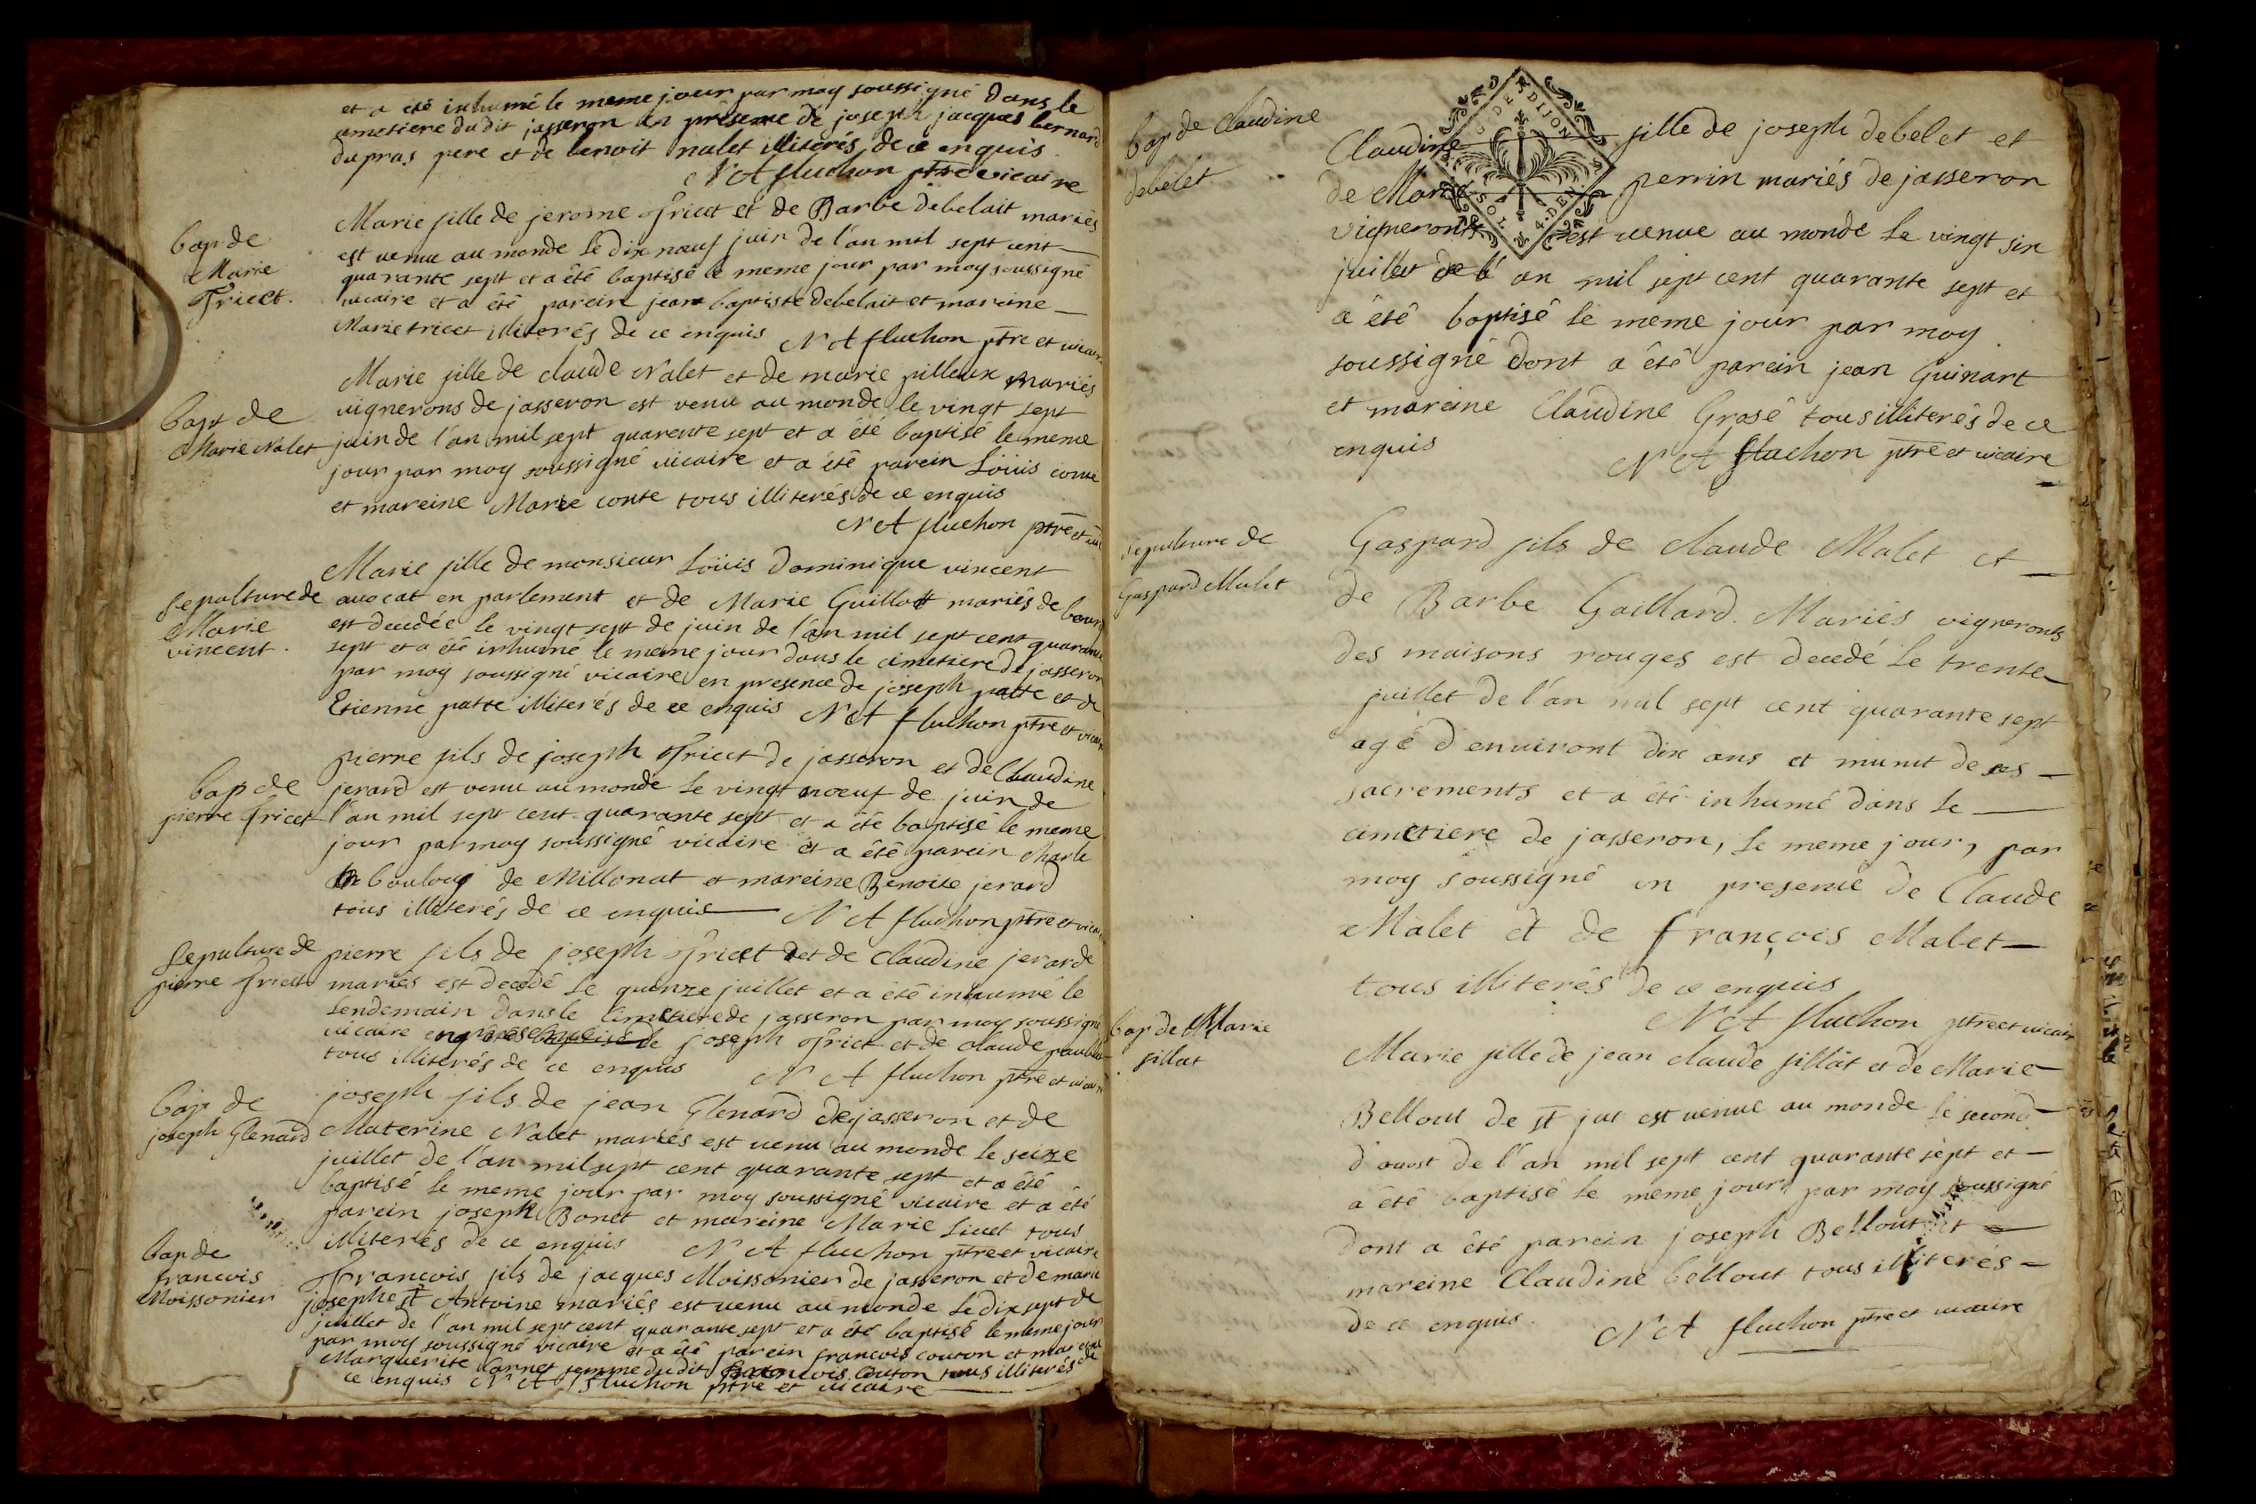 et a eté inhumé le meme jour par moy soussigné dans le
cimetiere du dit jasseron en présence de joseph jacques bernard
dupras pere et de benoit nalet illiterés de ce enquis
N A fluchon ptre vicaire
bap de
Marie
Fricet.
Marie fille de jerome Fricet et de Barbe debelait mariés
est venue au monde le dix neuf juin de l'an mil sept cent
quarante sept et a été baptisé le meme jour par moy soussigné
vicaire et a été parein jean baptiste debelait et mareine
Marie fricet illiterés de ce enquis N A fluchon ptre et vicair
bapt de
Marie Nalet
Marie fille de claude Nalet et de marie pilleux mariés
vignerons de jasseron est venu au monde le vingt sept
juin de l'an mil sept quarente sept et a été baptisé le meme
jour par moy soussigné vicaire et a été parein Loüis conte
et mareine Marie conte tous illiterés de ce enquis
N A fluchon ptre et
Sepulture de
Marie
vincent.
Marie fille de monsieur Loüis Dominique vincent
avocat en parlement et de Marie Guillott mariés de bourg
est decedée le vingt sept de juin de l'an mil sept cent quarante
sept et a été inhumé le meme jour dans le cimetiere de jasseron
par moy soussigné vicaire en presence de joseph patte et de
Etienne patte illiterés de ce enquis N A fluchon ptre et vicair
bap de
pierre fricet
pierre fils de joseph Fricet de jasseron et de Claudine
jerard est venu au monde le vingt noeuf de juin de
l'an mil sept cent quarante sept et a été baptisé le meme
jour par moy soussigné vicaire et a été parein charle
bouloug de Millonat et mareine Benoite jerard
tous illiterés de ce enquis N A fluchon ptre et vicai
Sepulture de
pierre Fricet
pierre fils de joseph Fricet et de Claudine jerarde
mariés est decedé le quinze juillet et a été inhumé le
lendemain dans le cimetiere de jasseron par moy soussigné
vicaire en presence de joseph Fricet et de claude
tous illiterés de ce enquis N A fluchon ptre et vicair
bap de
joseph Glenard
joseph fils de jean Glenard de jasseron et de
Materine Nalet mariés est venu au monde le seize
juillet de l'an mil sept cent quarante sept et a été
baptisé le meme jour par moy soussigné vicaire et a été
parein joseph Bonet et mareine Marie Livet tous
illiterés de ce enquis N A fluchon ptre et vicaire
bap de
francois
Moissonier
François fils de jacques Moissonier de jasseron et de marie
josephe st Antoine mariés est venu au monde le dix sept de
juillet de l'an mil sept cent quarante sept et a été baptisé le meme jour
par moy soussigné vicaire et a été parein francois couton et mareine
Marguerite Carnet femme du dit francois Couton tous illiterés de
ce enquis N A fluchon ptre et vicaire
bap de Claudine
debelet
G. DE DIJON
SOL 4. DEN
Claudine fille de joseph debelet et
de Marie perrin mariés de jasseron
vigneronts est venue au monde le vingt six
juillet de l'an mil sept cent quarante sept et
a été baptisé le meme jour par moy
soussigné dont a été parein jean Guinart
et mareine Claudine Grosé tous illiterés de ce
enquis N A fluchon ptre et vicaire
Sepulture de
Gaspard Malet
Gaspard fils de claude Malet et
de Barbe Gaillard. Mariés vigneronts
des maisons rouges est decedé le trente
juillet de l'an mil sept cent quarante sept
agé d'environt dix ans et munit de ses
sacrements et a été inhumé dans le
cimetiere de jasseron, le meme jour, par
moy soussigné en presence de Claude
Malet et de françois Malet
tous illiterés de ce enquis
N A fluchon ptre et vicair
bap de Marie
fillat
Marie fille de jean claude fillat et de Marie
Bellout de st jut est venue au monde le second
d'aoust de l'an mil sept cent quarante sept et
a été baptisé le meme jour par moy soussigné
dont a été parein joseph Bellout et
mareine Claudine bellout tous illiterés
de ce enquis. N A fluchon ptre et vicaire